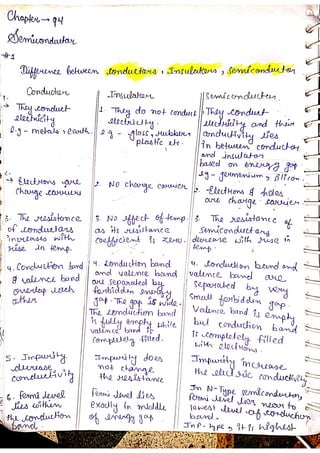 Chapter → 94
Semiconductor
#1
Difference between conductors, Insulators, semiconductor
Conductor
1. They conduct
electricity
e.g - metals, earth.
2. Electrons are
charge carriers
3. The resistance
of conductors
increases with
rise in temp.
4. Conduction band
& valence band
overlap each
other
5. Impurity
decrease
conductivity
6. Fermi level
lies within
the conduction
band
Insulator
1. They do not conduct
electricity.
e.g - glass, rubber,
plastic etc.
2. No charge carrier
3. No effect of temp.
as its resistance
coefficient is zero.
4. Conduction band
and valence band
are separated by
forbidden energy
gap. The gap is wide.
The conduction band
is fully empty while
valence band is
completely filled.
Impurity does
not change
the resistance
Fermi level lies
exactly in middle
of energy gap
Semiconductor
1. They conduct
electricity and their
conductivity lies
in between conductor
and insulator
based on energy gap
eg - germanium, silicon.
2. Electrons & holes
are charge carrier
3. The resistance of
semiconductors
decrease with rise in
temp.
4. Conduction band and
valence band are
separated by very
small forbidden gap.
Valance band is empty
but conduction band
is completely filled
with electrons.
Impurity increase
the electric conductivity
In N-Type semiconductor,
Fermi level lies near to
lowest level of conduction
band.
In P-type, it is highest